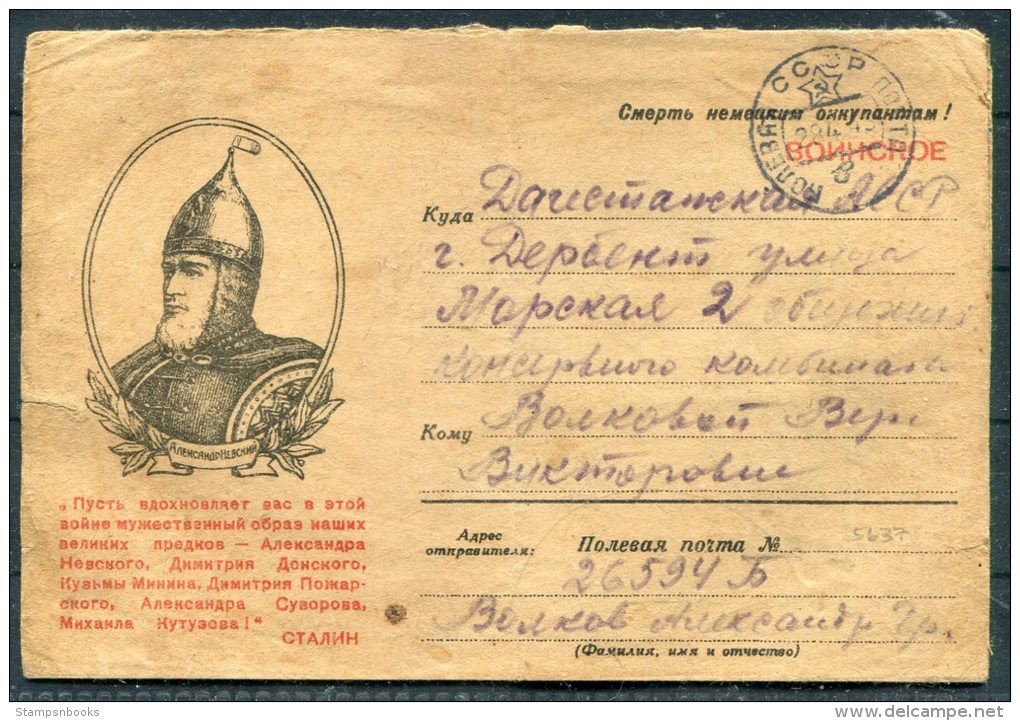 СССР ПОЛЕВАЯ ПОЧТА
Смерть немецким оккупантам!
ВОИНСКОЕ
Куда Дагестанский АССР
г. Дербент улица
Морская 2 общежит.
консервного комбината
Кому Волковой Вере
Викторовне
АЛЕКСАНДР НЕВСКИЙ
„Пусть вдохновляет вас в этой
войне мужественный образ наших
великих предков — Александра
Невского, Димитрия Донского,
Кузьмы Минина, Димитрия Пожар-
ского, Александра Суворова,
Михаила Кутузова!"
СТАЛИН
Адрес
отправителя: Полевая почта №
5637
26594 Б
Волков Александр Гр.
(Фамилия, имя и отчество)
Stampsnbooks
www.delcampe.net